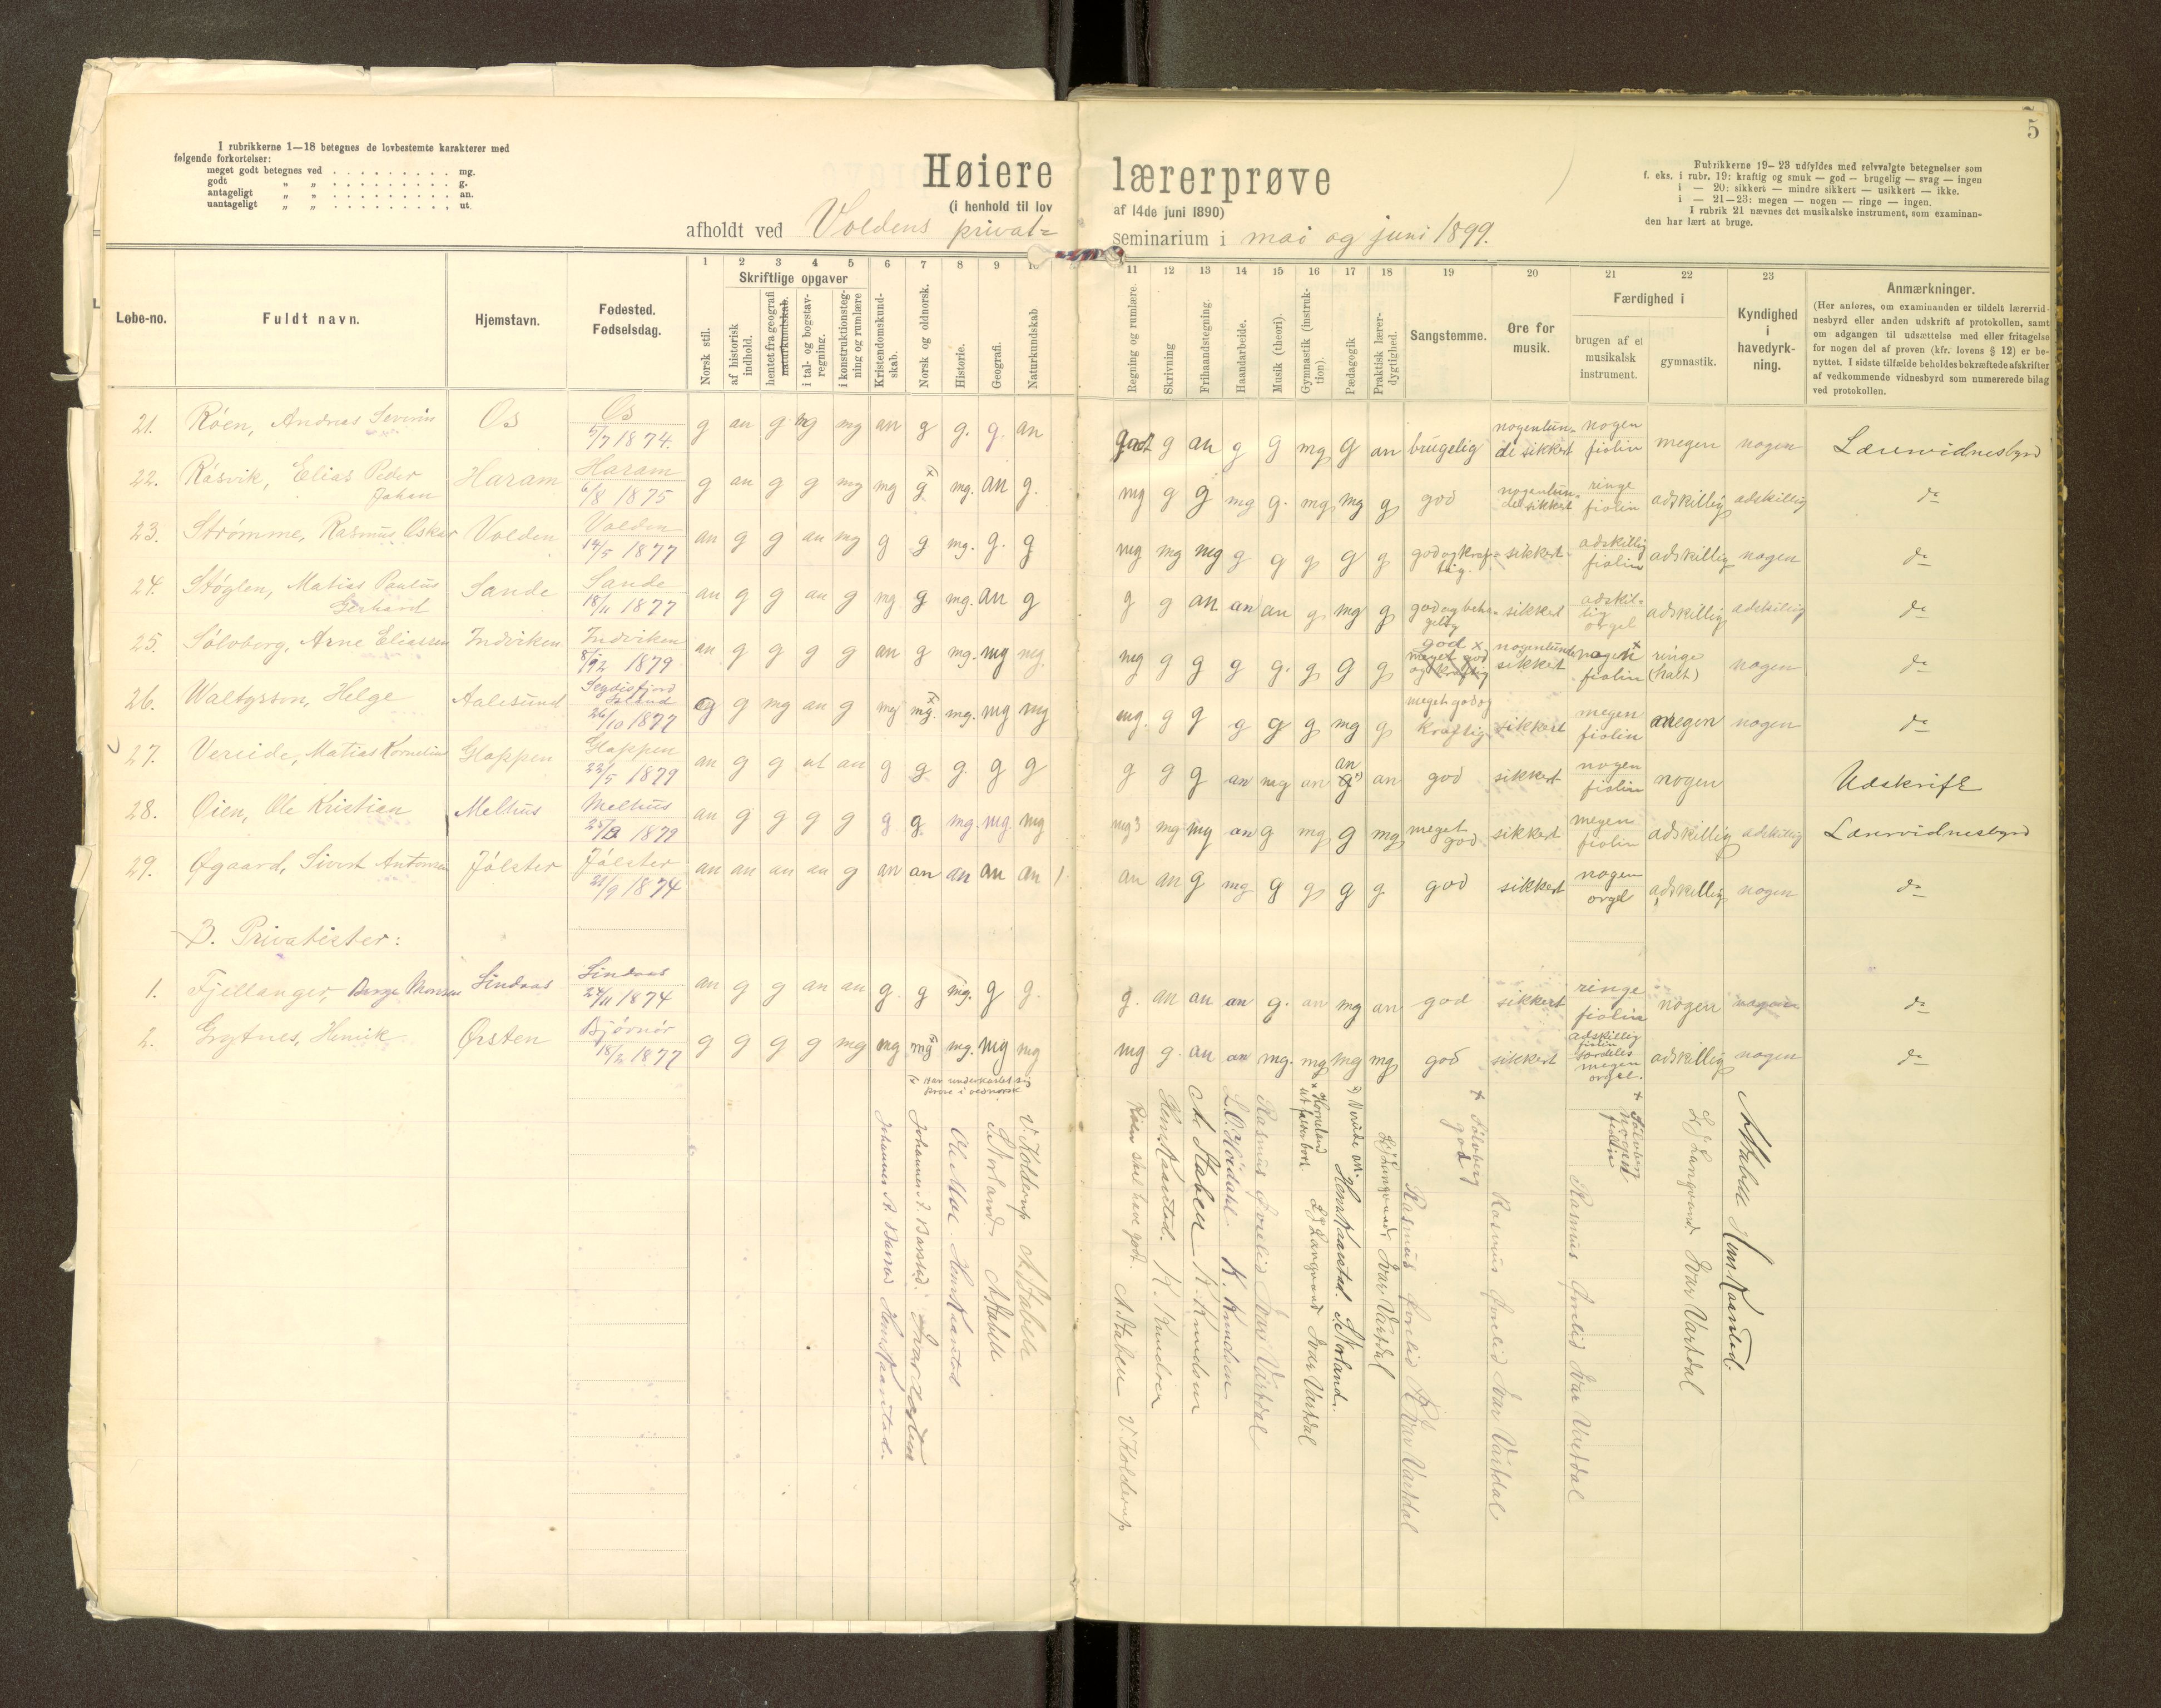 5
I rubrikkerne 1—18 betegnes de lovbestemte karakterer med
følgende forkortelser:
meget godt betegnes ved . . . . . . . . . mg.
godt „ „ . . . . . . . . . g.
antageligt „ „ . . . . . . . . . an.
uantageligt „ „ . . . . . . . . . ut.
Høiere lærerprøve
(i henhold til lov af 14de juni 1890)
afholdt ved Voldens privat= seminarium i mai og juni 1899.
Rubrikkerne 19—23 udfyldes med selvvalgte betegnelser som
f. eks. i rubr. 19: kraftig og smuk — god — brugelig — svag — ingen
i — 20: sikkert — mindre sikkert — usikkert — ikke.
i — 21—23: megen — nogen — ringe — ingen.
I rubrik 21 nævnes det musikalske instrument, som examinan-
den har lært at bruge.
Løbe-no.
Fuldt navn.
Hjemstavn.
Fødested.
Fødselsdag.
1 Norsk stil.
Skriftlige opgaver
2 af historisk indhold.
3 hentet fra geografi naturkundskab.
4 i tal- og bogstav-regning.
5 i konstruktionsteg-ning og rumlære
6 Kristendomskund-skab.
7 Norsk og oldnorsk.
8 Historie.
9 Geografi.
10 Naturkundskab
11 Regning og rumlære.
12 Skrivning
13 Frihaandstegning.
14 Haandarbeide.
15 Musik (theori).
16 Gymnastik (instruk-tion).
17 Pædagogik
18 Praktisk lærer-dygtighed.
19 Sangstemme.
20 Øre for musik.
Færdighed i
21 brugen af et musikalsk instrument.
22 gymnastik.
23 Kyndighed i havedyrk-ning.
Anmærkninger.
(Her anføres, om examinanden er tildelt lærervid-
nesbyrd eller anden udskrift af protokollen, samt
om adgangen til udsættelse med eller fritagelse
for nogen del af prøven (kfr. lovens § 12) er be-
nyttet. I sidste tilfælde beholdes bekræftede afskrifter
af vedkommende vidnesbyrd som numererede bilag
ved protokollen.
21. Røen, Andreas Severin Os Os 5/7 1874. g an g mg mg an g g. g. an godt g an g g mg g an brugelig nogenlun-de sikkert nogen fiolin megen nogen Lærervidnesbyrd
22. Råsvik, Elias Peder Johan Haram Haram 6/8 1875 g an g g mg mg g x mg. an g. mg g g mg g. mg mg g god nogenlun-de sikkert ringe fiolin adskillig adskillig do
23. Strømme, Rasmus Oskar Volden Volden 14/5 1877 an g g an mg g g mg. g. g mg mg mg g g g g g god og kraf-tig. sikkert adskillig fiolin adskillig nogen do
24. Støylen, Matias Paulus Gerhard Sande Sande 18/11 1877 an g g an g mg g mg. an g g g an an an g mg g god og beha-gelig sikkert adskil-lig orgel adskillig adskillig do
25. Sølvberg, Arne Eliassen Indviken Indviken 8/12 1879 an g g g g an g mg. mg mg. mg g g g g. g g g god x meget god og kraftig nogenlunde sikkert nogen x fiolin ringe (halt) nogen do
26. Waltysson, Helge Aalesund Seydisfjord Island 26/10 1877 g g mg an g mg mg. x mg. mg mg mg. g g g g g mg g meget god og kraftig sikkert megen fiolin megen nogen do
27. Vereide, Matias Kornelius Gloppen Gloppen 22/5 1879 an g g ut an g g g. g g g g g an mg an an g an god sikkert nogen fiolin nogen Udskrift
28. Øien, Ole Kristian Melhus Melhus 1879 an g g g g g g. mg. mg. mg mg mg mg an g mg g mg meget god sikkert megen fiolin adskillig adskillig Lærervidnesbyrd
29. Øgaard, Sivert Antonsen Jølster Jølster 21/9 1874 an an an an g an an an an an an an g mg g g g g. god sikkert nogen orgel adskillig nogen do
B. Privatister:
1. Fjellanger, Børge Monsen Lindaas Lindaas 24/11 1874 an g g an an g g mg. g g. g. an an an g. an mg an god sikkert ringe fiolin nogen nogen do
2. Grytnes, Henrik Ørsten Bjørnør 18/2 1877 g g g g mg mg mg x mg. mg mg mg g. an an mg. mg mg mg god sikkert adskillig fiolin særdeles megen orgel. adskillig nogen do
x Har underkastet sig prøve i oldnorsk
Johannes Henr. Kaarstad.
Johannes Ivar Vartdal
Ole Moe. Henr. Kaarstad
S. Norland A. Stabell
V. Kolderup A. Stabell
Røen skal have godt. A. Staben V. Kolderup
Henr. Kaarstad. K. Knudsen
A. Staben K. Knudsen
K. Knudsen
Rasmus Ivar Vartdal
Ivar Vartdal
Vereide an. Henr. Kaarstad. S. Norland.
Ivar Vartdal
x Sølvberg god
Rasmus Ivar Vartdal
Rasmus Ivar Vartdal
x Sølvberg nogen fiolin
Rasmus Ivar Vartdal
Ivar Vartdal
A. Stabell Henr. Kaarstad.